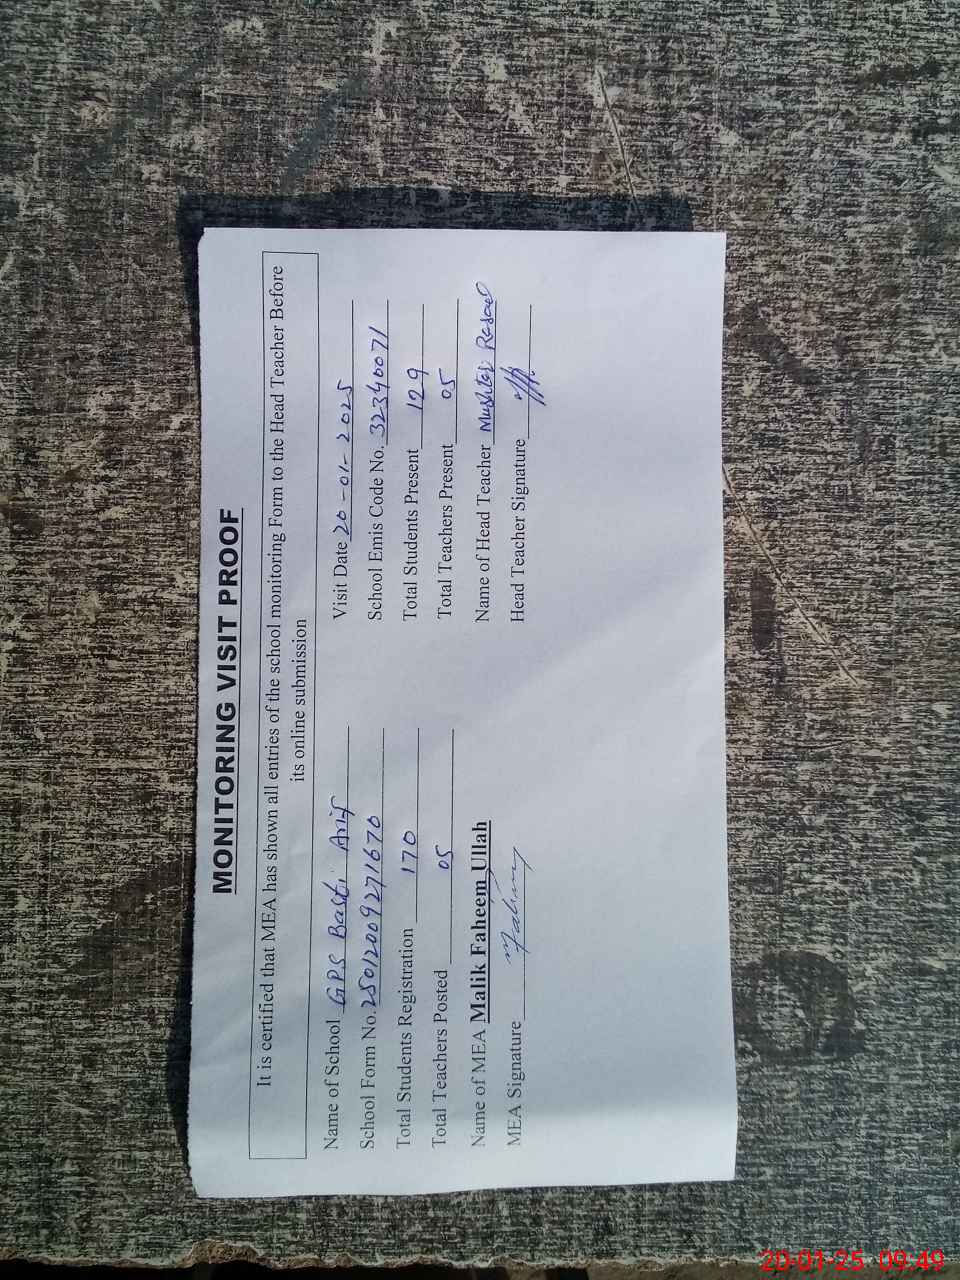 MONITORING VISIT PROOF
It is certified that MEA has shown all entries of the school monitoring Form to the Head Teacher Before
its online submission
Name of School GPS Basti Arif Visit Date 20-01-2025
School Form No. 25012009271670 School Emis Code No. 32340071
Total Students Registration 170 Total Students Present 129
Total Teachers Posted 05 Total Teachers Present 05
Name of MEA Malik Faheem Ullah Name of Head Teacher
MEA Signature Head Teacher Signature
20-01-25 09:49